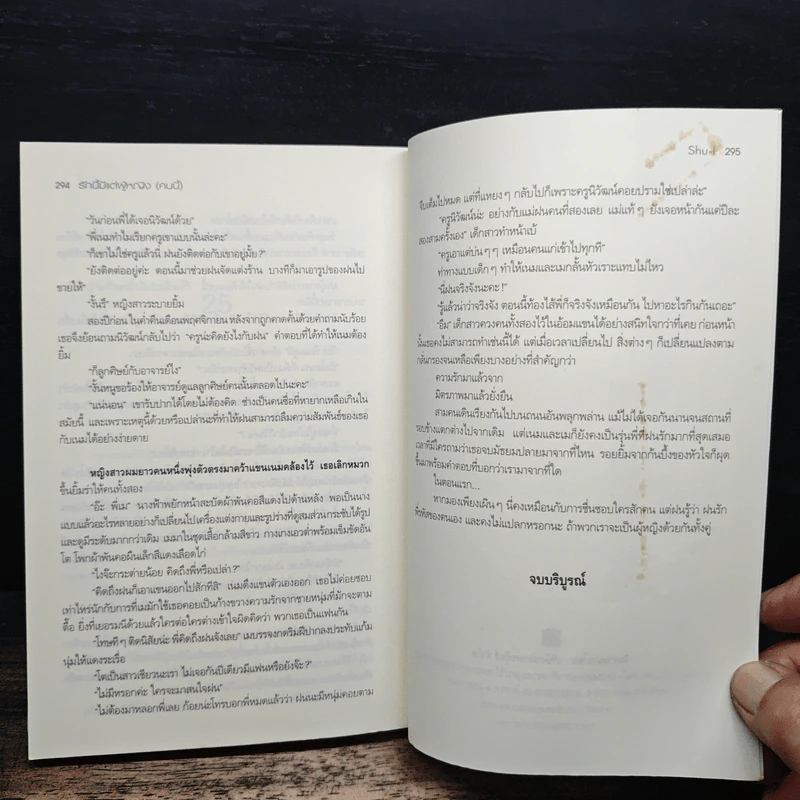 294 รักนี้มีแต่ผู้หญิง (คนนี้)
"วันก่อนพี่ได้เจอนิวัฒน์ด้วย"
"พี่เนมทำไมเรียกครูเขาแบบนั้นล่ะคะ"
"ก็เขาไม่ใช่ครูแล้วนี่ ฝนยังติดต่อกับเขาอยู่มั้ย?"
"ยังติดต่ออยู่ค่ะ ตอนนี้มาช่วยฝนจัดแต่งร้าน บางทีก็มาเอารูปของฝนไป
ขายให้"
"งั้นรึ" หญิงสาวระบายยิ้ม
สองปีก่อน ในค่ำคืนเดือนพฤศจิกายน หลังจากถูกคาดคั้นด้วยคำถามนับร้อย
เธอจึงย้อนถามนิวัฒน์กลับไปว่า "ครูน่ะคิดยังไงกับฝน" คำตอบที่ได้ทำให้เนมต้อง
ยิ้ม
"ก็ลูกศิษย์กับอาจารย์ไง"
"งั้นหนูขอร้องให้อาจารย์ดูแลลูกศิษย์คนนั้นตลอดไปนะคะ"
"แน่นอน" เขารับปากได้โดยไม่ต้องคิด ช่างเป็นคนซื่อที่หายากเหลือเกินใน
สมัยนี้ และเพราะเหตุนี้ด้วยหรือเปล่านะที่ทำให้ฝนสามารถลืมความสัมพันธ์ของเธอ
กับเนมได้อย่างง่ายดาย
หญิงสาวผมยาวคนหนึ่งพุ่งตัวตรงมาคว้าแขนเนมคล้องไว้ เธอเลิกหมวก
ขึ้นยิ้มร่าให้คนทั้งสอง
"อ๊ะ พี่เม" นางฟ้าพยักหน้าสะบัดผ้าพันคอสีแดงไปด้านหลัง พอเป็นนาง
แบบแล้วอะไรหลายอย่างก็เปลี่ยนไป เครื่องแต่งกายและรูปร่างที่ดูสมส่วนกระชับได้รูป
และดูมีระดับมากกว่าเดิม เมมาในชุดเสื้อกล้ามสีขาว กางเกงเอวต่ำพร้อมเข็มขัดอัน
โต โพกผ้าพันคอผืนเล็กสีแดงเลือดไก่
"ไงจ๊ะกระต่ายน้อย คิดถึงพี่หรือเปล่า?"
"คิดถึงฝนก็เอาแขนออกไปสักทีสิ" เนมดึงแขนตัวเองออก เธอไม่ค่อยชอบ
เท่าไหร่นักกับการที่เมมักใช้เธอคอยเป็นก้างขวางความรักจากชายหนุ่มที่มักจะตาม
ตื๊อ ยิ่งที่เยอรมนีด้วยแล้วใครต่อใครต่างเข้าใจผิดคิดว่า พวกเธอเป็นแฟนกัน
"โทษทีๆ ติดนิสัยน่ะ พี่คิดถึงฝนจังเลย" เมบรรจงกดริมฝีปากลงประทับแก้ม
นุ่มให้แดงระเรื่อ
"โตเป็นสาวเชียวนะเรา ไม่เจอกันปีเดียวมีแฟนหรือยังจ๊ะ?"
"ไม่มีหรอกค่ะ ใครจะมาสนใจฝน"
"ไม่ต้องมาหลอกพี่เลย ก้อยน่ะโทรบอกพี่หมดแล้วว่า ฝนน่ะมีหนุ่มคอยตาม
Shu-I 295
จีบเต็มไปหมด แต่ที่แหยงๆ กลับไปก็เพราะครูนิวัฒน์คอยปรามใช่เปล่าล่ะ"
"ครูนิวัฒน์น่ะ อย่างกับแม่ฝนคนที่สองเลย แม่แท้ๆ ยังเจอหน้ากันแค่ปีละ
สองสามครั้งเอง" เด็กสาวทำหน้าเบ้
"ครูเอาแต่บ่นๆๆ เหมือนคนแก่เข้าไปทุกที"
ท่าทางแบบเด็กๆ ทำให้เนมและเมกลั้นหัวเราะแทบไม่ไหว
"นี่ฝนจริงจังนะคะ!"
"รู้แล้วน่าว่าจริงจัง ตอนนี้ท้องไส้พี่ก็จริงจังเหมือนกัน ไปหาอะไรกินกันเถอะ"
"อืม" เด็กสาวควงคนทั้งสองไว้ในอ้อมแขนได้อย่างสนิทใจกว่าที่เคย ก่อนหน้า
นั้นเธอคงไม่สามารถทำเช่นนี้ได้ แต่เมื่อเวลาเปลี่ยนไป สิ่งต่างๆ ก็เปลี่ยนแปลงตาม
กลั่นกรองจนเหลือเพียงบางอย่างที่สำคัญกว่า
ความรักมาแล้วจาก
มิตรภาพมาแล้วยั่งยืน
สามคนเดินเรียงกันไปบนถนนอันพลุกพล่าน แม้ไม่ได้เจอกันนานจนสถานที่
รอบข้างแตกต่างไปจากเดิม แต่เนมและเมก็ยังคงเป็นรุ่นพี่ที่ฝนรักมากที่สุดเสมอ
เวลาที่มีใครถามว่าเธอจบมัธยมปลายมาจากที่ไหน รอยยิ้มจากก้นบึ้งของหัวใจก็ผุด
ขึ้นมาพร้อมคำตอบที่บอกว่าเรามาจากที่ใด
ในตอนแรก...
หากมองเพียงเผินๆ นี่คงเหมือนกับการชื่นชอบใครสักคน แต่ฝนรู้ว่า ฝนรัก
พี่รหัสของตนเอง และคงไม่แปลกหรอกนะ ถ้าพวกเราจะเป็นผู้หญิงด้วยกันทั้งคู่
จบบริบูรณ์